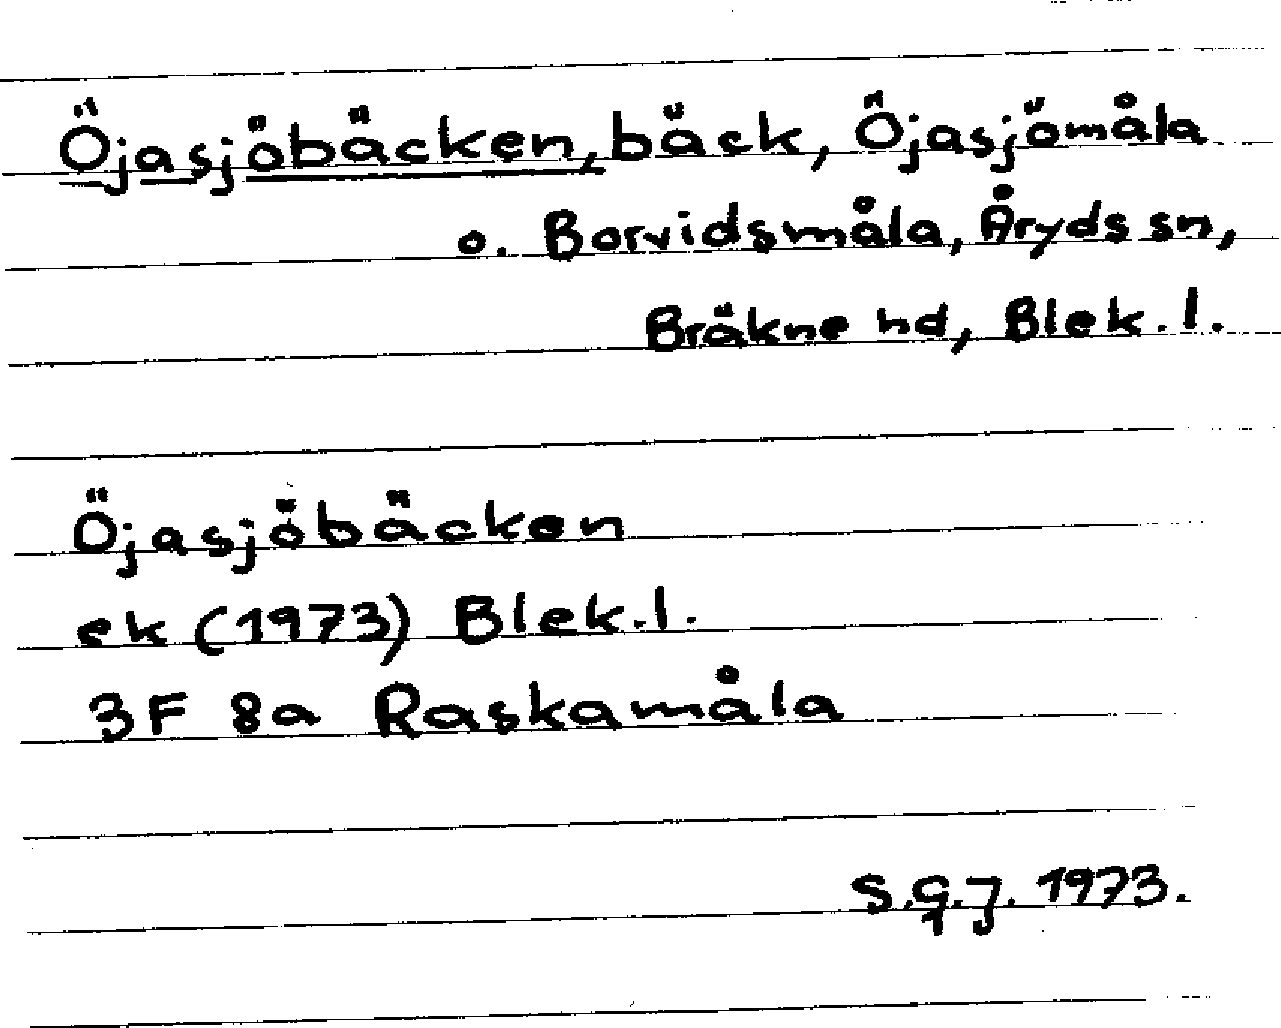 Öjasjöbäcken, bäck, Öjasjömåla
o. Borvidsmåla, Åryds sn,
Bräkne hd, Blek. l.
Öjasjöbäcken
ek (1973) Blek. l.
3F 8a Raskamåla
S.G.J. 1973.